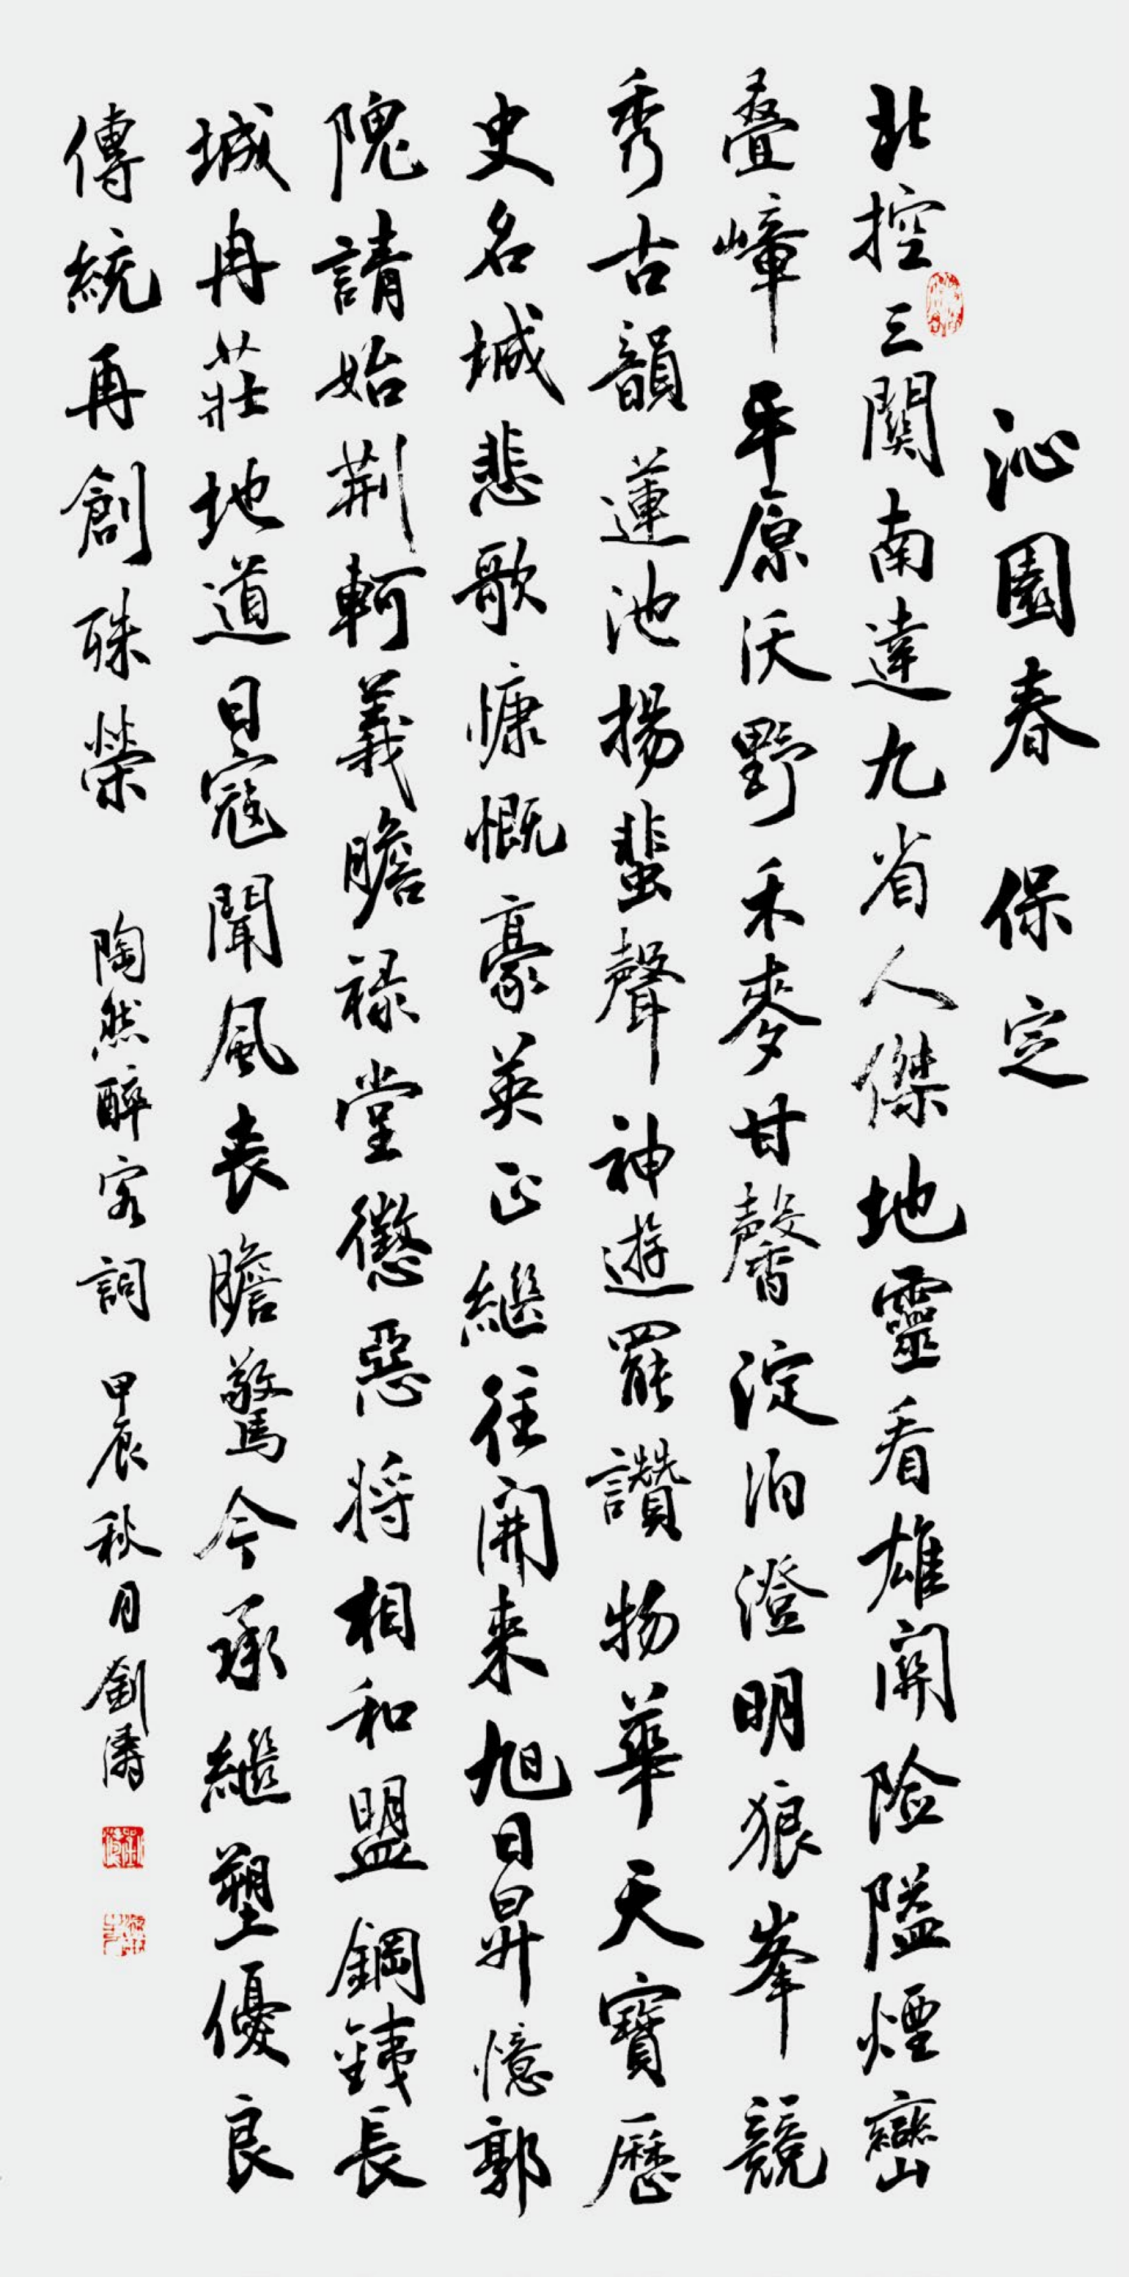 沁園春 保定
北控三関南達九省人傑地靈看雄關險隘煙巒
叠嶂平原沃野禾麥甘馨淀泊澄明狼峯競
秀古韻蓮池揚蜚聲神遊罷讚物華天寶歷
史名城悲歌慷慨豪英正繼往開来旭日昇憶郭
隗請始荆軻義膽禄堂懲惡将相和盟鋼鐵長
城冉莊地道日寇聞風丧膽驚今承繼塑優良
傳統再創殊榮 陶然醉客詞 甲辰秋月劉濤